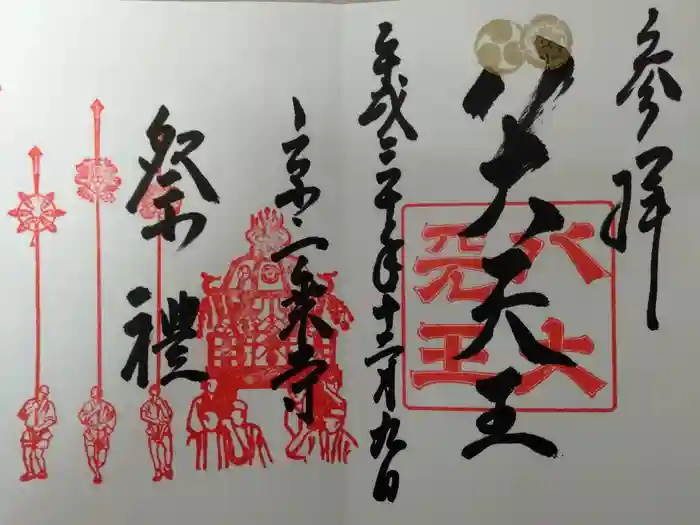 参拝
八大天王
八大
天王
平成三十年十二月九日
京一乗寺
祭禮